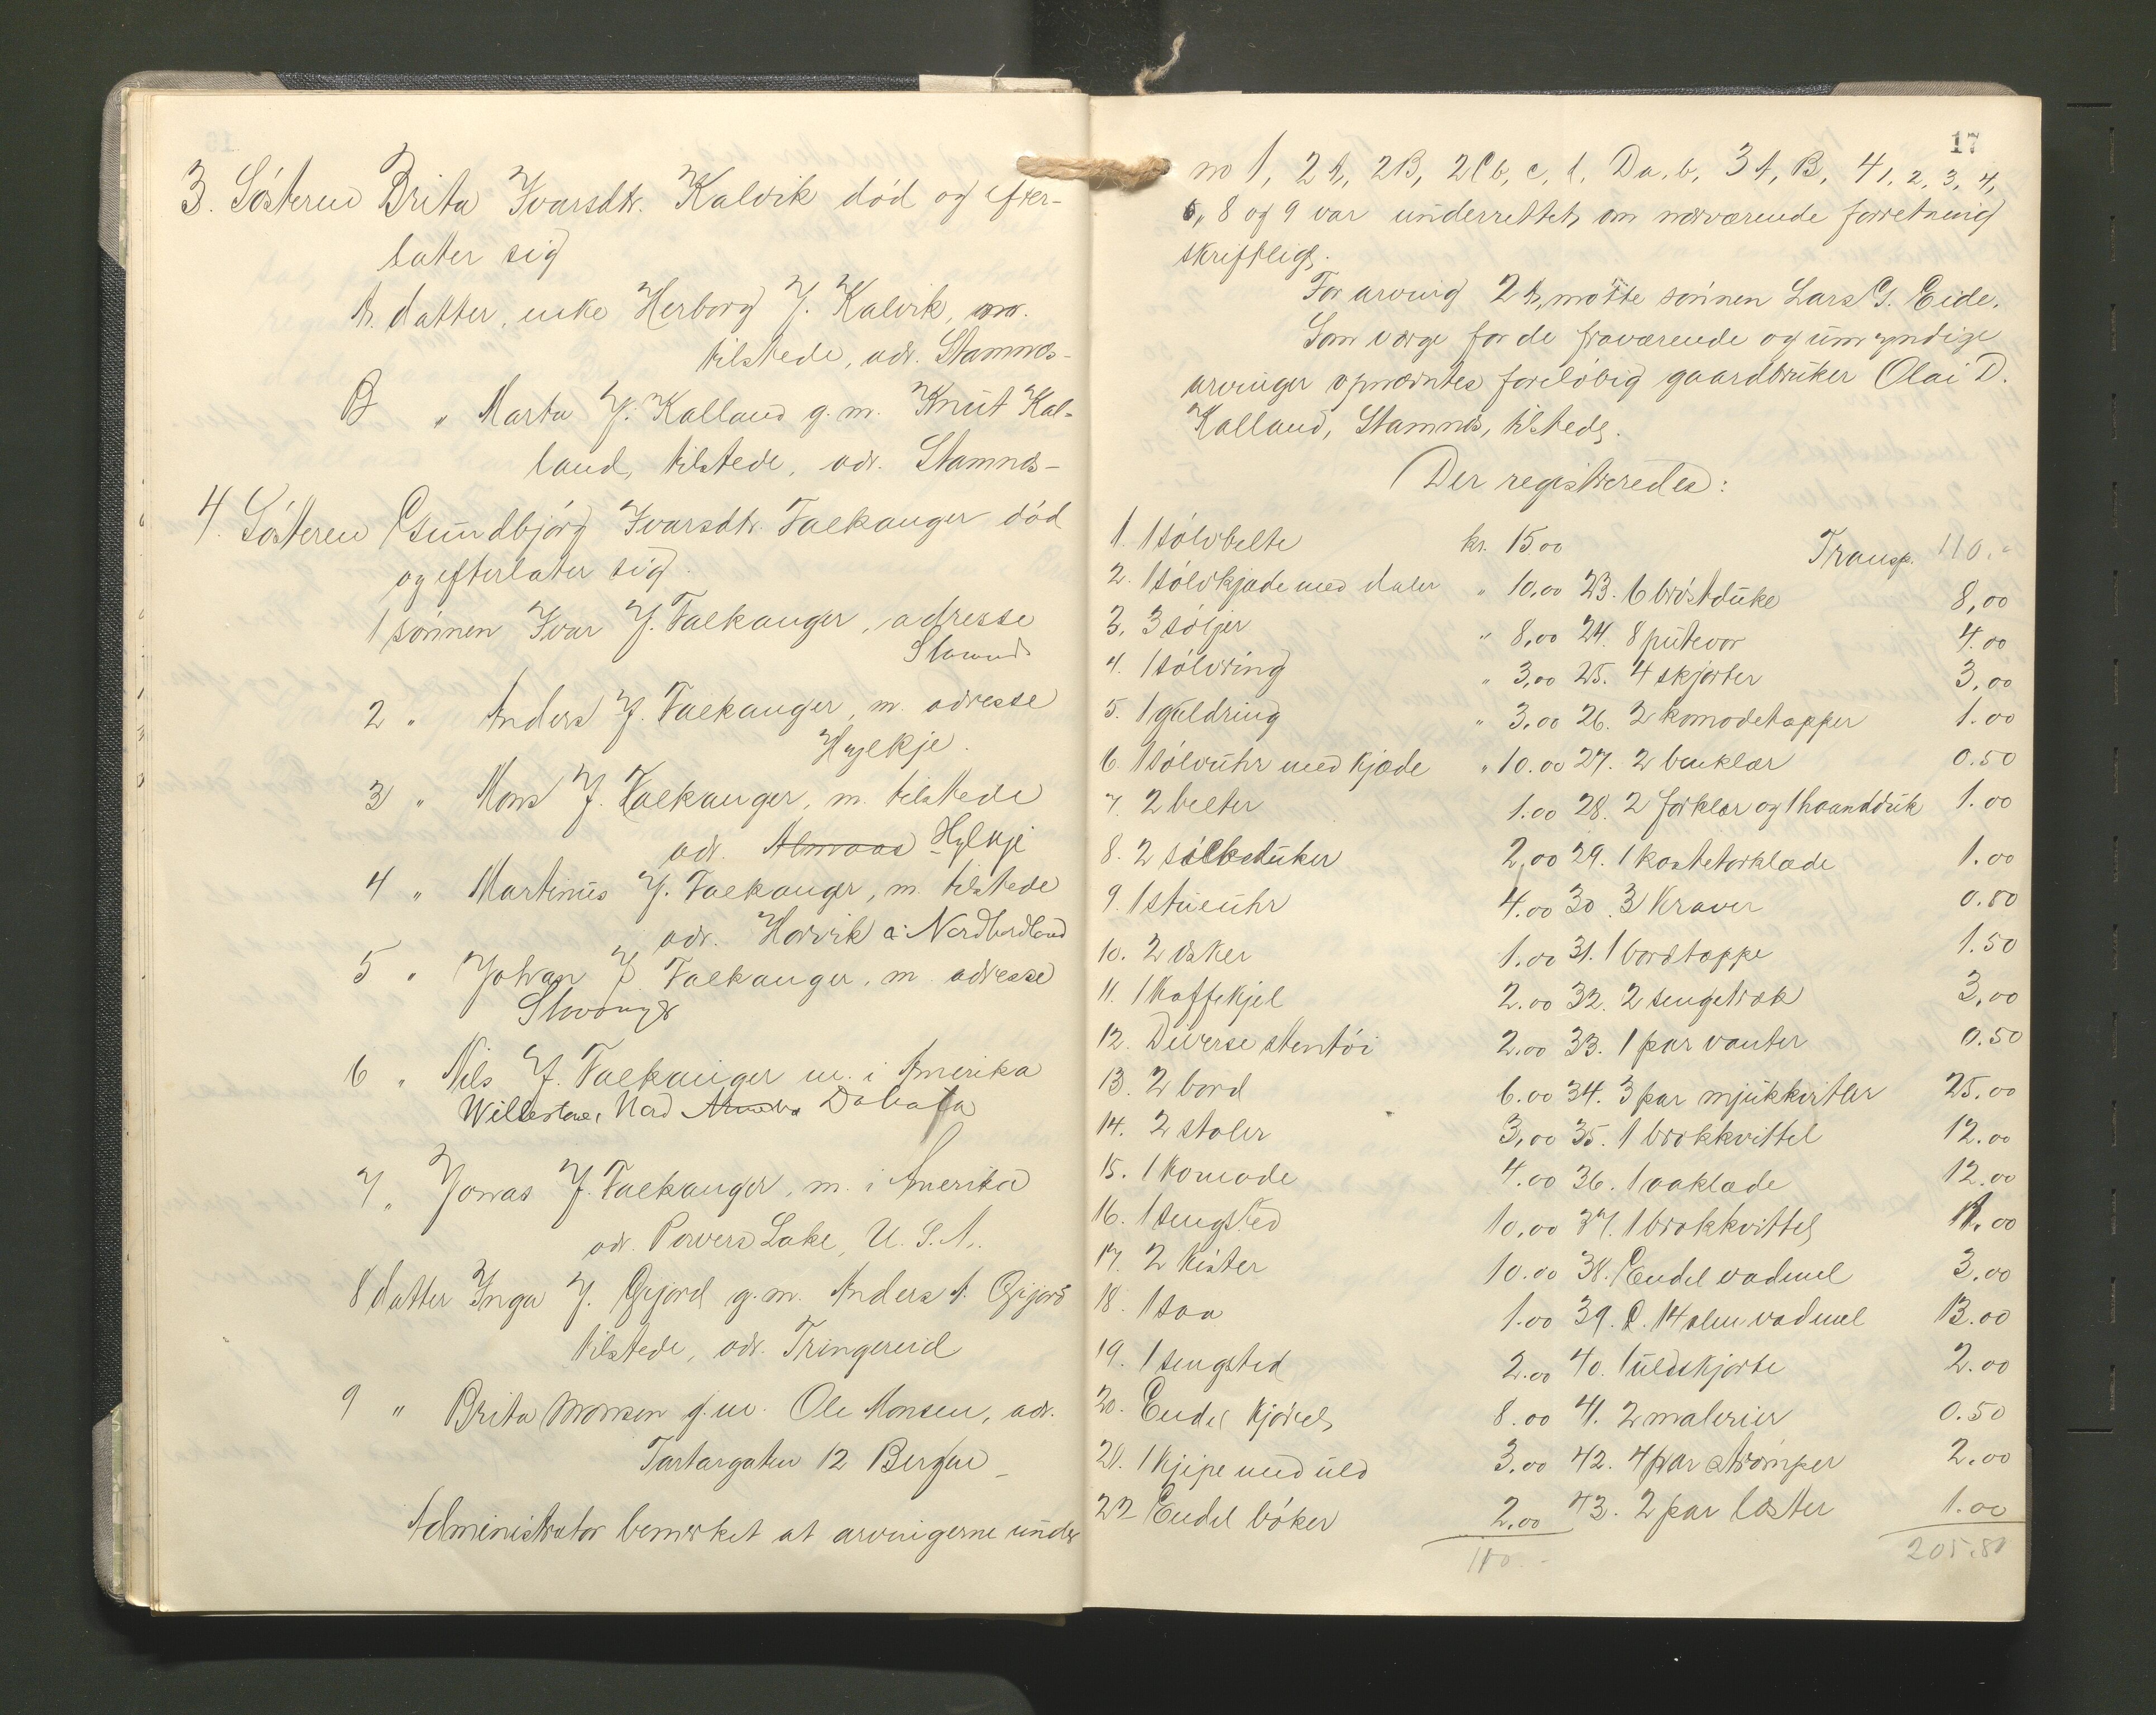 3. Søsteren Brita Ivarsdtr. Kalvik död og efter-
later sig
A. datter, enke Herborg J. Kalvik,
tilstede, adr. Stamnes-
B " Marta J. Kalland g.m. Knut Kal-
land, tilstede, adr. Stamnes-
4. Søsteren Gundbjørg Ivarsdtr. Falkanger död
og efterlater sig.
1 sønnen Ivar J. Falkanger, adresse
Stamnes
2 " Anders J. Falkanger, m. adresse
Hylkje.
3 " Mons J. Falkanger, m. tilstede
adr. Almaas Hylkje
4 " Martinus J. Falkanger, m. tilstede
adr. Horvik i Nordhordland
5 " Johan J. Falkanger, m. adresse
Stavanger
6 " Nils J. Falkanger m. i Amerika
Nord Dakota
7 " Jonas J. Falkanger, m. i Amerika
adr. Powers Lake, U.S.A.
8 datter Inga J. Gjord g.m. Anders A. Gjord
tilstede, adr. Tringereid
9 " Brita Monsen g.m. Ole Monsen, adr.
Tartargaten 12 Bergen
Administrator bemerket at arvingerne under
17
no 1, 2A, 2B, 2Cb, c, d, Da, b, 3A, B, 4 1, 2, 3, 4,
6, 8 og 9 var underrettet om nærværende forretning
skriftlig.
For arving 2A, møtte sønnen Lars G. Eide.
Som værge for de fraværende og umyndige
arvinger opnævntes foreløbig gaardbruker Olai D.
Kalland, Stamnes, tilstede.
Der registreredes:
1. 1 sølvbelte kr. 15.00
2. 1 sølvkjæde med daler " 10,00
3. 3 søljer " 8,00
4. 1 sølvring " 3,00
5. 1 guldring " 3.00
6. 1 sølvuhr med kjæde " 10.00
7. 2 belter 1.00
8. 2 silkeduker 2,00
9. 1 stueuhr 4.00
10. 2 æsker 1.00
11. 1 kaffekjel 2.00
12. Diverse stentøi 2.00
13. 2 bord 6.00
14. 2 stoler 3,00
15. 1 komode 4.00
16. 1 sengsted 10,00
17. 2 kister 10.00
18. 1 saa 1.00
19. 1 sengsted 2.00
20. Endel kjørel 8.00
21. 1 kjipe med uld 3.00
22 Endel bøker 2,00
110.-
Transp. 110.-
23. 6 brøstduke 8,00
24. 8 putevor 4.00
25. 4 skjorter 3,00
26. 2 komodetapper 1.00
27. 2 benklær 0.50
28. 2 forklær og 1 haandduk 1.00
29. 1 kastetørklæde 1.00
30. 3 Kraver 0.80
31. 1 bordtæppe 1.50
32. 2 sengetræk 3,00
33. 1 par vanter 0.50
34. 3 par mjukkvitler 25.00
35. 1 brokkvittel 12.00
36. 1 aaklæde 12.00
37. 1 brokkvittel 11.00
38. Endel vadmel 3.00
39. D. 14 alen vadmel 13.00
40. 1 uldskjorte 2.00
41. 2 malerier 0.50
42. 4 par strømper 2.00
43. 2 par læster 1.00
205.80